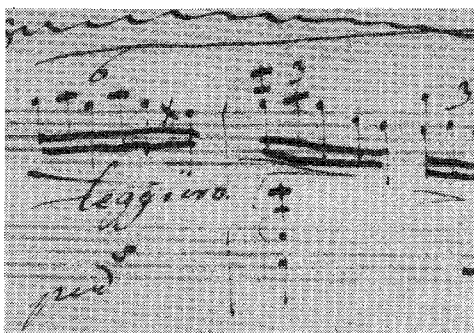 6 3 3
leggiero.
ped